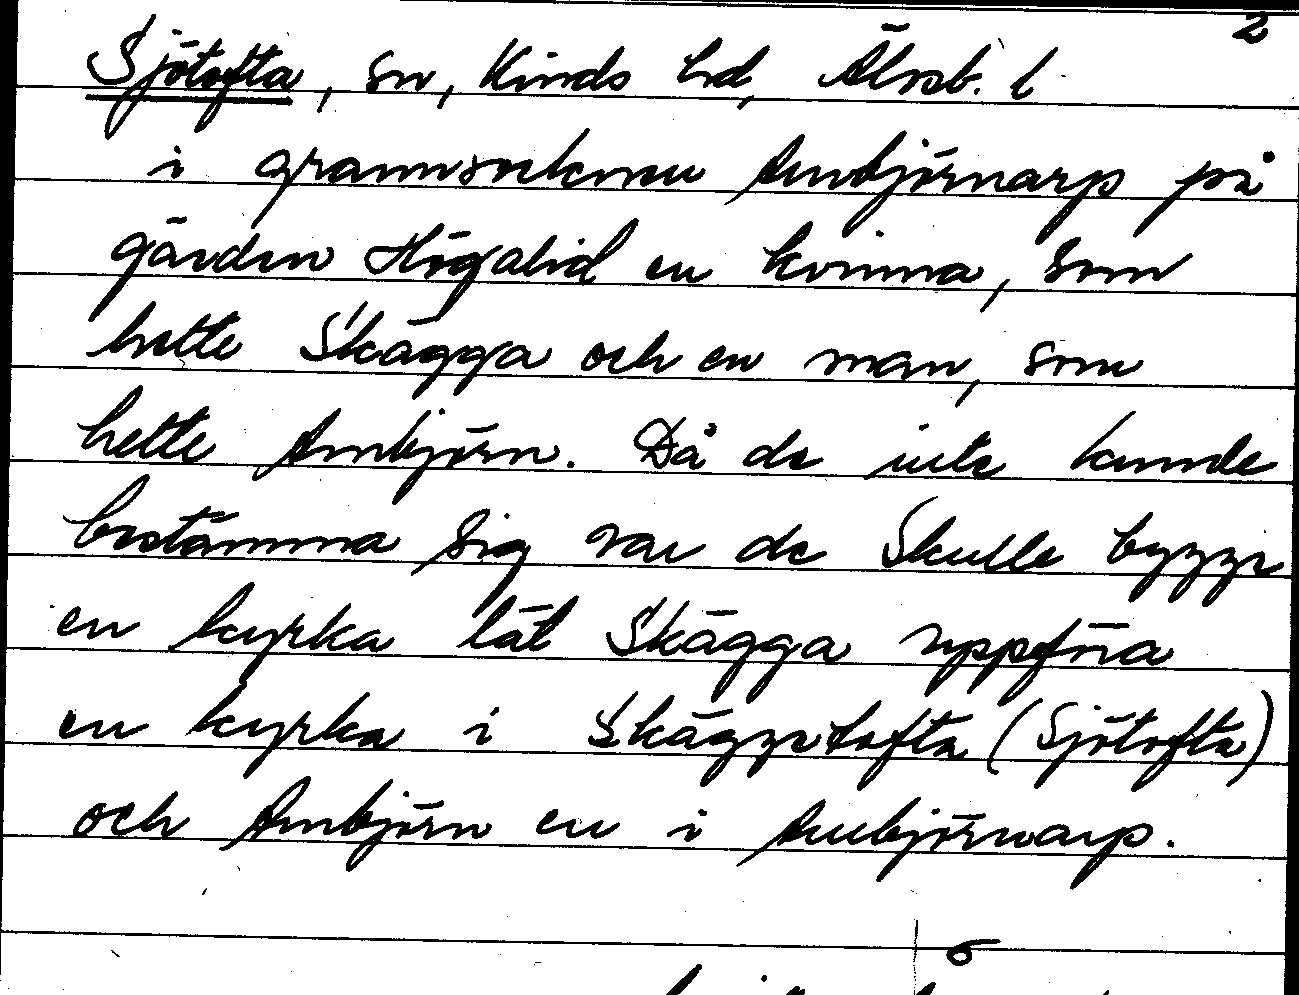 2
Sjötofta, sn, Kinds hd, Älvsb. l
i grannsocknen Ambjörnarp på
gården Högalid en kvinna, som
hette Skägga och en man, som
hette Ambjörn. Då de inte kunde
bestämma sig var de skulle bygga
en kyrka lät Skägga uppföra
en kyrka i Skäggatofta (Sjötofta)
och Ambjörn en i Ambjörnarp.